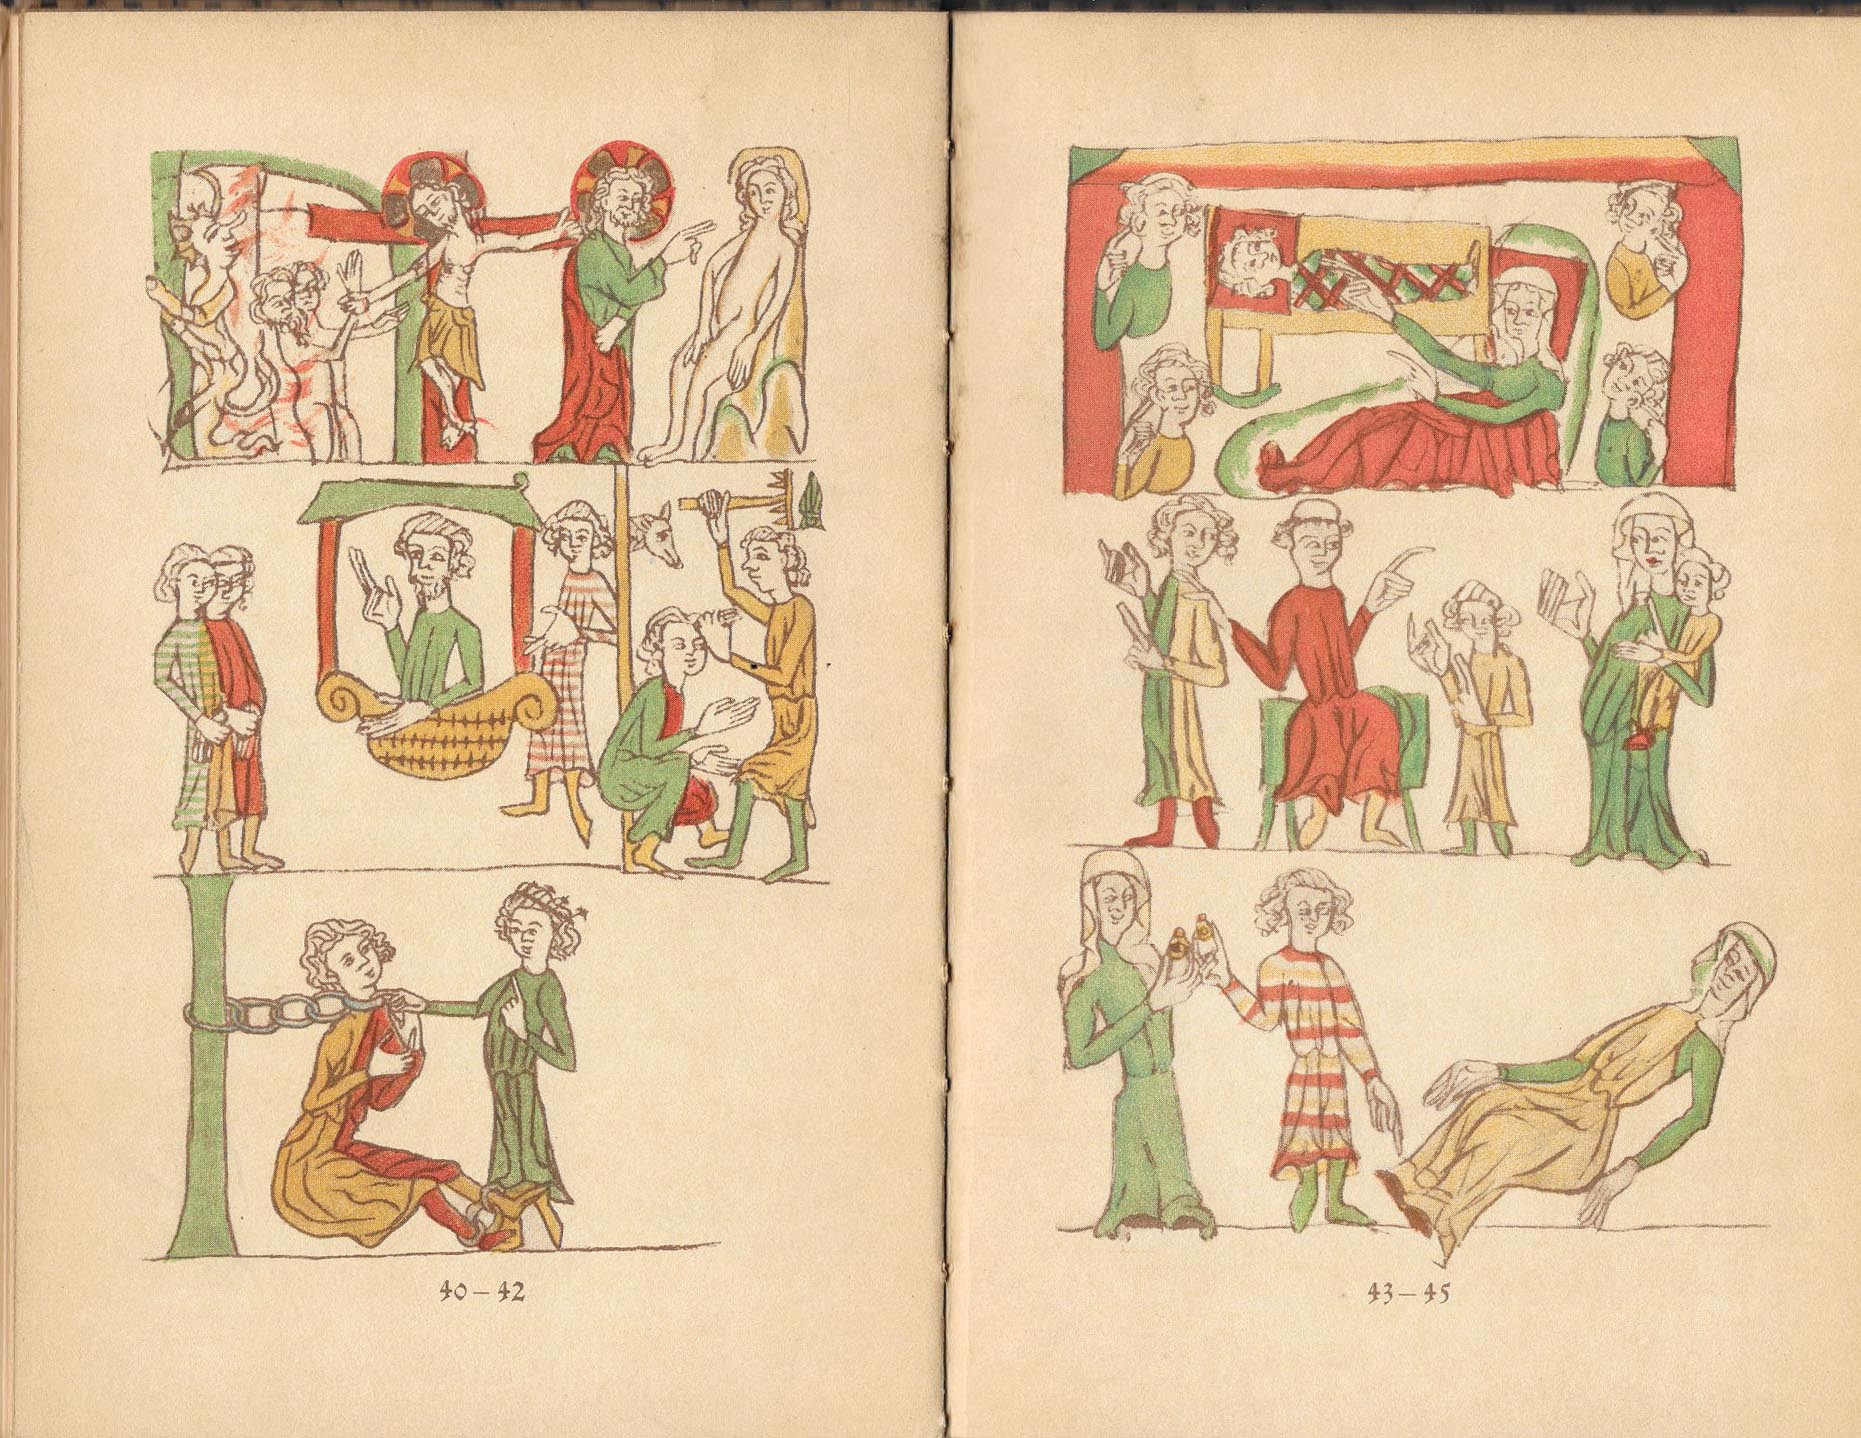 40 – 42
43 – 45